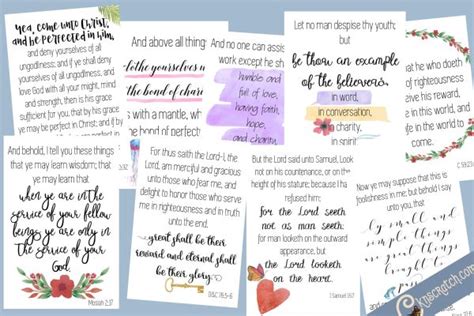 Yea, come unto Christ,
and be perfected in him,
and deny yourselves of all
ungodliness; and if ye shall deny
yourselves of all ungodliness, and
love God with all your might, mind
and strength, then is his grace
sufficient for you, that by his grace
ye may be perfect in Christ; and if by
And above all things
clothe yourselves
the bond of char
as with a mantle, wh
the bond of perfect
And no one can assis
work except he sh
humble and
full of love,
having faith,
hope,
and charity,
Let no man despise thy youth;
but
be thou an example
of the believers,
in word,
in conversation,
in charity,
in spirit
he who doeth
of righteousness
receive his reward,
in this world,
and eternal life in the
world to come.
And behold, I tell you these things
that ye may learn wisdom; that
ye may learn that
when ye are in the
service of your fellow
beings ye are only in
the service of your
God.
Mosiah 2:17
For thus saith the Lord—I, the
Lord, am merciful and gracious
unto those who fear me, and
delight to honor those who serve
me in righteousness and in truth
unto the end,
great shall be their
reward and eternal shall
be their glory.
D&C 76:5-6
But the Lord said unto Samuel, Look
not on his countenance, or on the
height of his stature; because I have
refused him;
for the Lord seeth
not as man seeth;
for man looketh on the outward
appearance, but
the Lord looketh
on the heart.
1 Samuel 16:7
Now ye may suppose that this is
foolishness in me; but behold I say
unto you, that
by small and
simple things
are great things
brought to